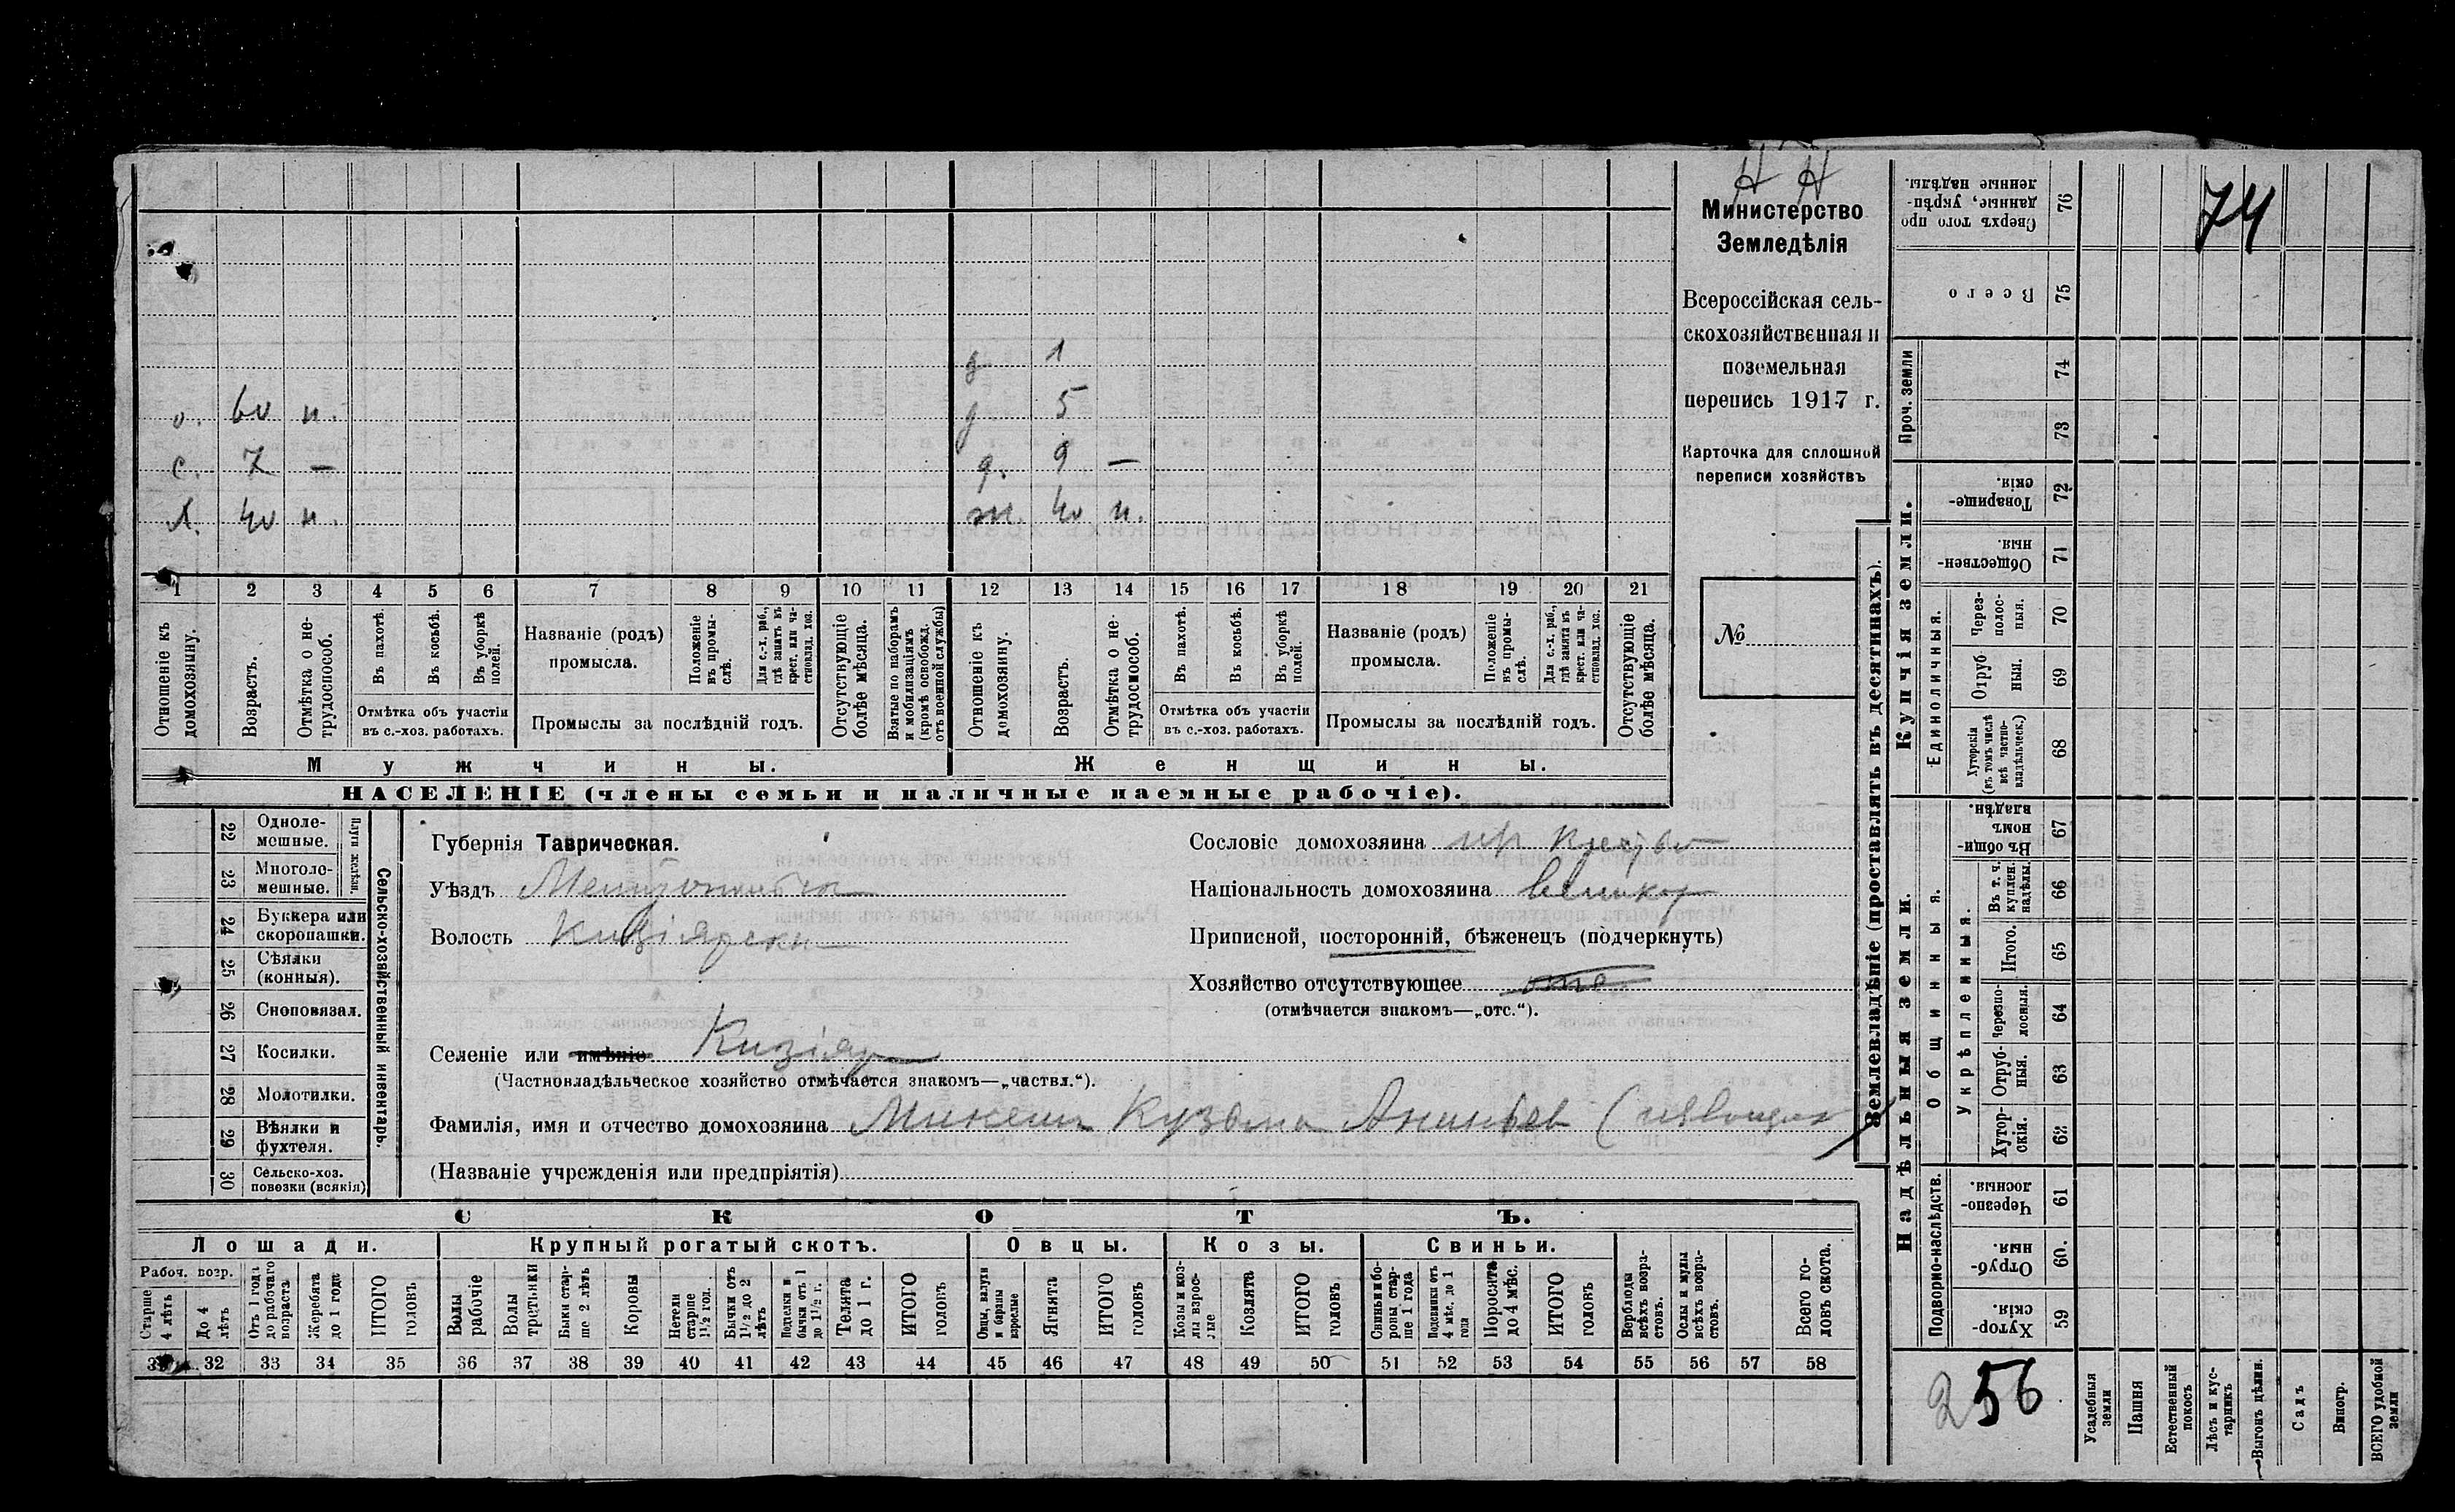 Н Н
Министерство
Земледѣлія
Всероссійская сель-
скохозяйственная и
поземельная
перепись 1917 г.
Карточка для сплошной
переписи хозяйствъ
№
74
д 1
о. 60 н. д 5
с. 7 — д. 9 —
х. 40 н. ж. 40 н.
1 2 3 4 5 6 7 8 9 10 11 12 13 14 15 16 17 18 19 20 21
Отношеніе къ домохозяину.
Возрастъ.
Отмѣтка о не-трудоспособ.
Въ пахотѣ.
Въ косьбѣ.
Въ уборкѣ полей.
Отмѣтка объ участіи
въ с.-хоз. работахъ.
Названіе (родъ)
промысла.
Положеніе въ промы-слѣ.
Для с.-х. раб., гдѣ занятъ въ крест. или ча-стновлад. хоз.
Промыслы за послѣдній годъ.
Отсутствующіе болѣе мѣсяца.
Взятые по наборамъ и мобилизаціямъ (кромѣ освобожд. отъ военной службы)
Отношеніе къ домохозяину.
Возрастъ.
Отмѣтка о не-трудоспособ.
Въ пахотѣ.
Въ косьбѣ.
Въ уборкѣ полей.
Отмѣтка объ участіи
въ с.-хоз. работахъ.
Названіе (родъ)
промысла.
Положеніе въ промы-слѣ.
Для с.-х. раб., гдѣ занята въ крест. или ча-стновлад. хоз.
Промыслы за послѣдній годъ.
Отсутствующіе болѣе мѣсяца.
Мужчины. Женщины.
НАСЕЛЕНІЕ (члены семьи и наличные наемные рабочіе).
22 Одноле-мешные.
23 Многоле-мешные.
24 Буккера или скоропашки.
25 Сѣялки (конныя).
26 Сноповязал.
27 Косилки.
28 Молотилки.
29 Вѣялки и фухтеля.
30 Сельско-хоз. повозки (всякія)
Сельско-хозяйственный инвентарь.
Губернія Таврическая.
Уѣздъ Мелитопольск
Волость Кизіярск
Селеніе или имѣніе Кизіяр
(Частновладѣльческое хозяйство отмѣчается знакомъ—„частвл.“).
Фамилія, имя и отчество домохозяина Микеш Кузьма Ананьев
(Названіе учрежденія или предпріятія)
Сословіе домохозяина кр
Національность домохозяина Велик
Приписной, посторонній, бѣженецъ (подчеркнуть)
Хозяйство отсутствующее отс
(отмѣчается знакомъ—„отс.“).
СКОТЪ.
Лошади. Крупный рогатый скотъ. Овцы. Козы. Свиньи.
Рабоч. возр.
Старше 4 лѣтъ
До 4 лѣтъ
Отъ 1 года до рабочаго возраста
Жеребята до 1 года
ИТОГО головъ
Волы рабочіе
Волы третьяки
Быки стар-ше 2 лѣтъ
Коровы
Нетели старше 1½ год.
Бычки отъ 1½ до 2 лѣтъ
Подтелки и бычки отъ 1 до 1½ г.
Телята до 1 г.
ИТОГО головъ
Овцы, валухи и бараны взрослые
Ягнята
ИТОГО головъ
Козы и коз-лы взрос-лые
Козлята
ИТОГО головъ
Свиньи и бо-ровы стар-ше 1 года
Подсвинки отъ 4 мѣс. до 1 года
Поросята до 4 мѣс.
ИТОГО головъ
Верблюды всѣхъ возра-стовъ.
Ослы и мулы всѣхъ возра-стовъ.
Всего го-ловъ скота.
31 32 33 34 35 36 37 38 39 40 41 42 43 44 45 46 47 48 49 50 51 52 53 54 55 56 57 58
Землевладѣніе (проставлять въ десятинахъ).
Купчія земли.
Надѣльныя земли.
Проч. земли
Единоличныя.
Общинныя.
Укрѣпленныя.
Подворно-наслѣдств.
76 Сверхъ того про-данные, укрѣп-ленные надѣлы.
75 Всего
74
73
72 Товарище-скія.
71 Обществен-ныя.
70 Через-полос-ныя.
69 Отруб-ныя.
68 Хуторскія (въ томъ числѣ всѣ частно-владѣльческ.)
67 Въ общин-номъ владѣн.
66 Въ т. ч. куплен. надѣлы.
65 Итого.
64 Черезпо-лосныя.
63 Отруб-ныя.
62 Хутор-скія.
61 Черезпо-лосныя.
60. Отруб-ныя.
59 Хутор-скія.
256
Усадебныя земли
Пашня
Естественный покосъ
Лѣсъ и кус-тарникъ
Выгонъ цѣлин.
Садъ
Виногр.
ВСЕГО удобной земли